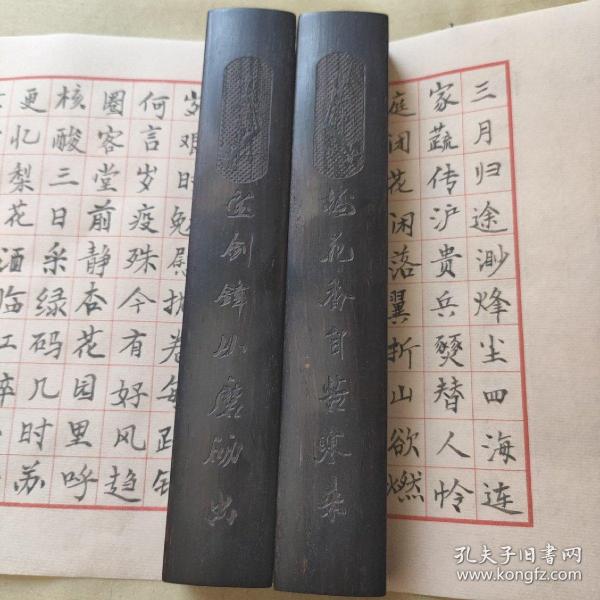 三月归途渺烽尘四海连
家蔬传沪贵兵燹替人怜
庭闭花闲落翼折山欲燃
梅花香自苦寒来
宝剑锋从磨砺出
何言岁疫殊今有好风
圈容堂前静杏花园里呼
核酸三日采绿码几时苏
更忆梨花酒临江
孔夫子旧书网
www.kongfz.com